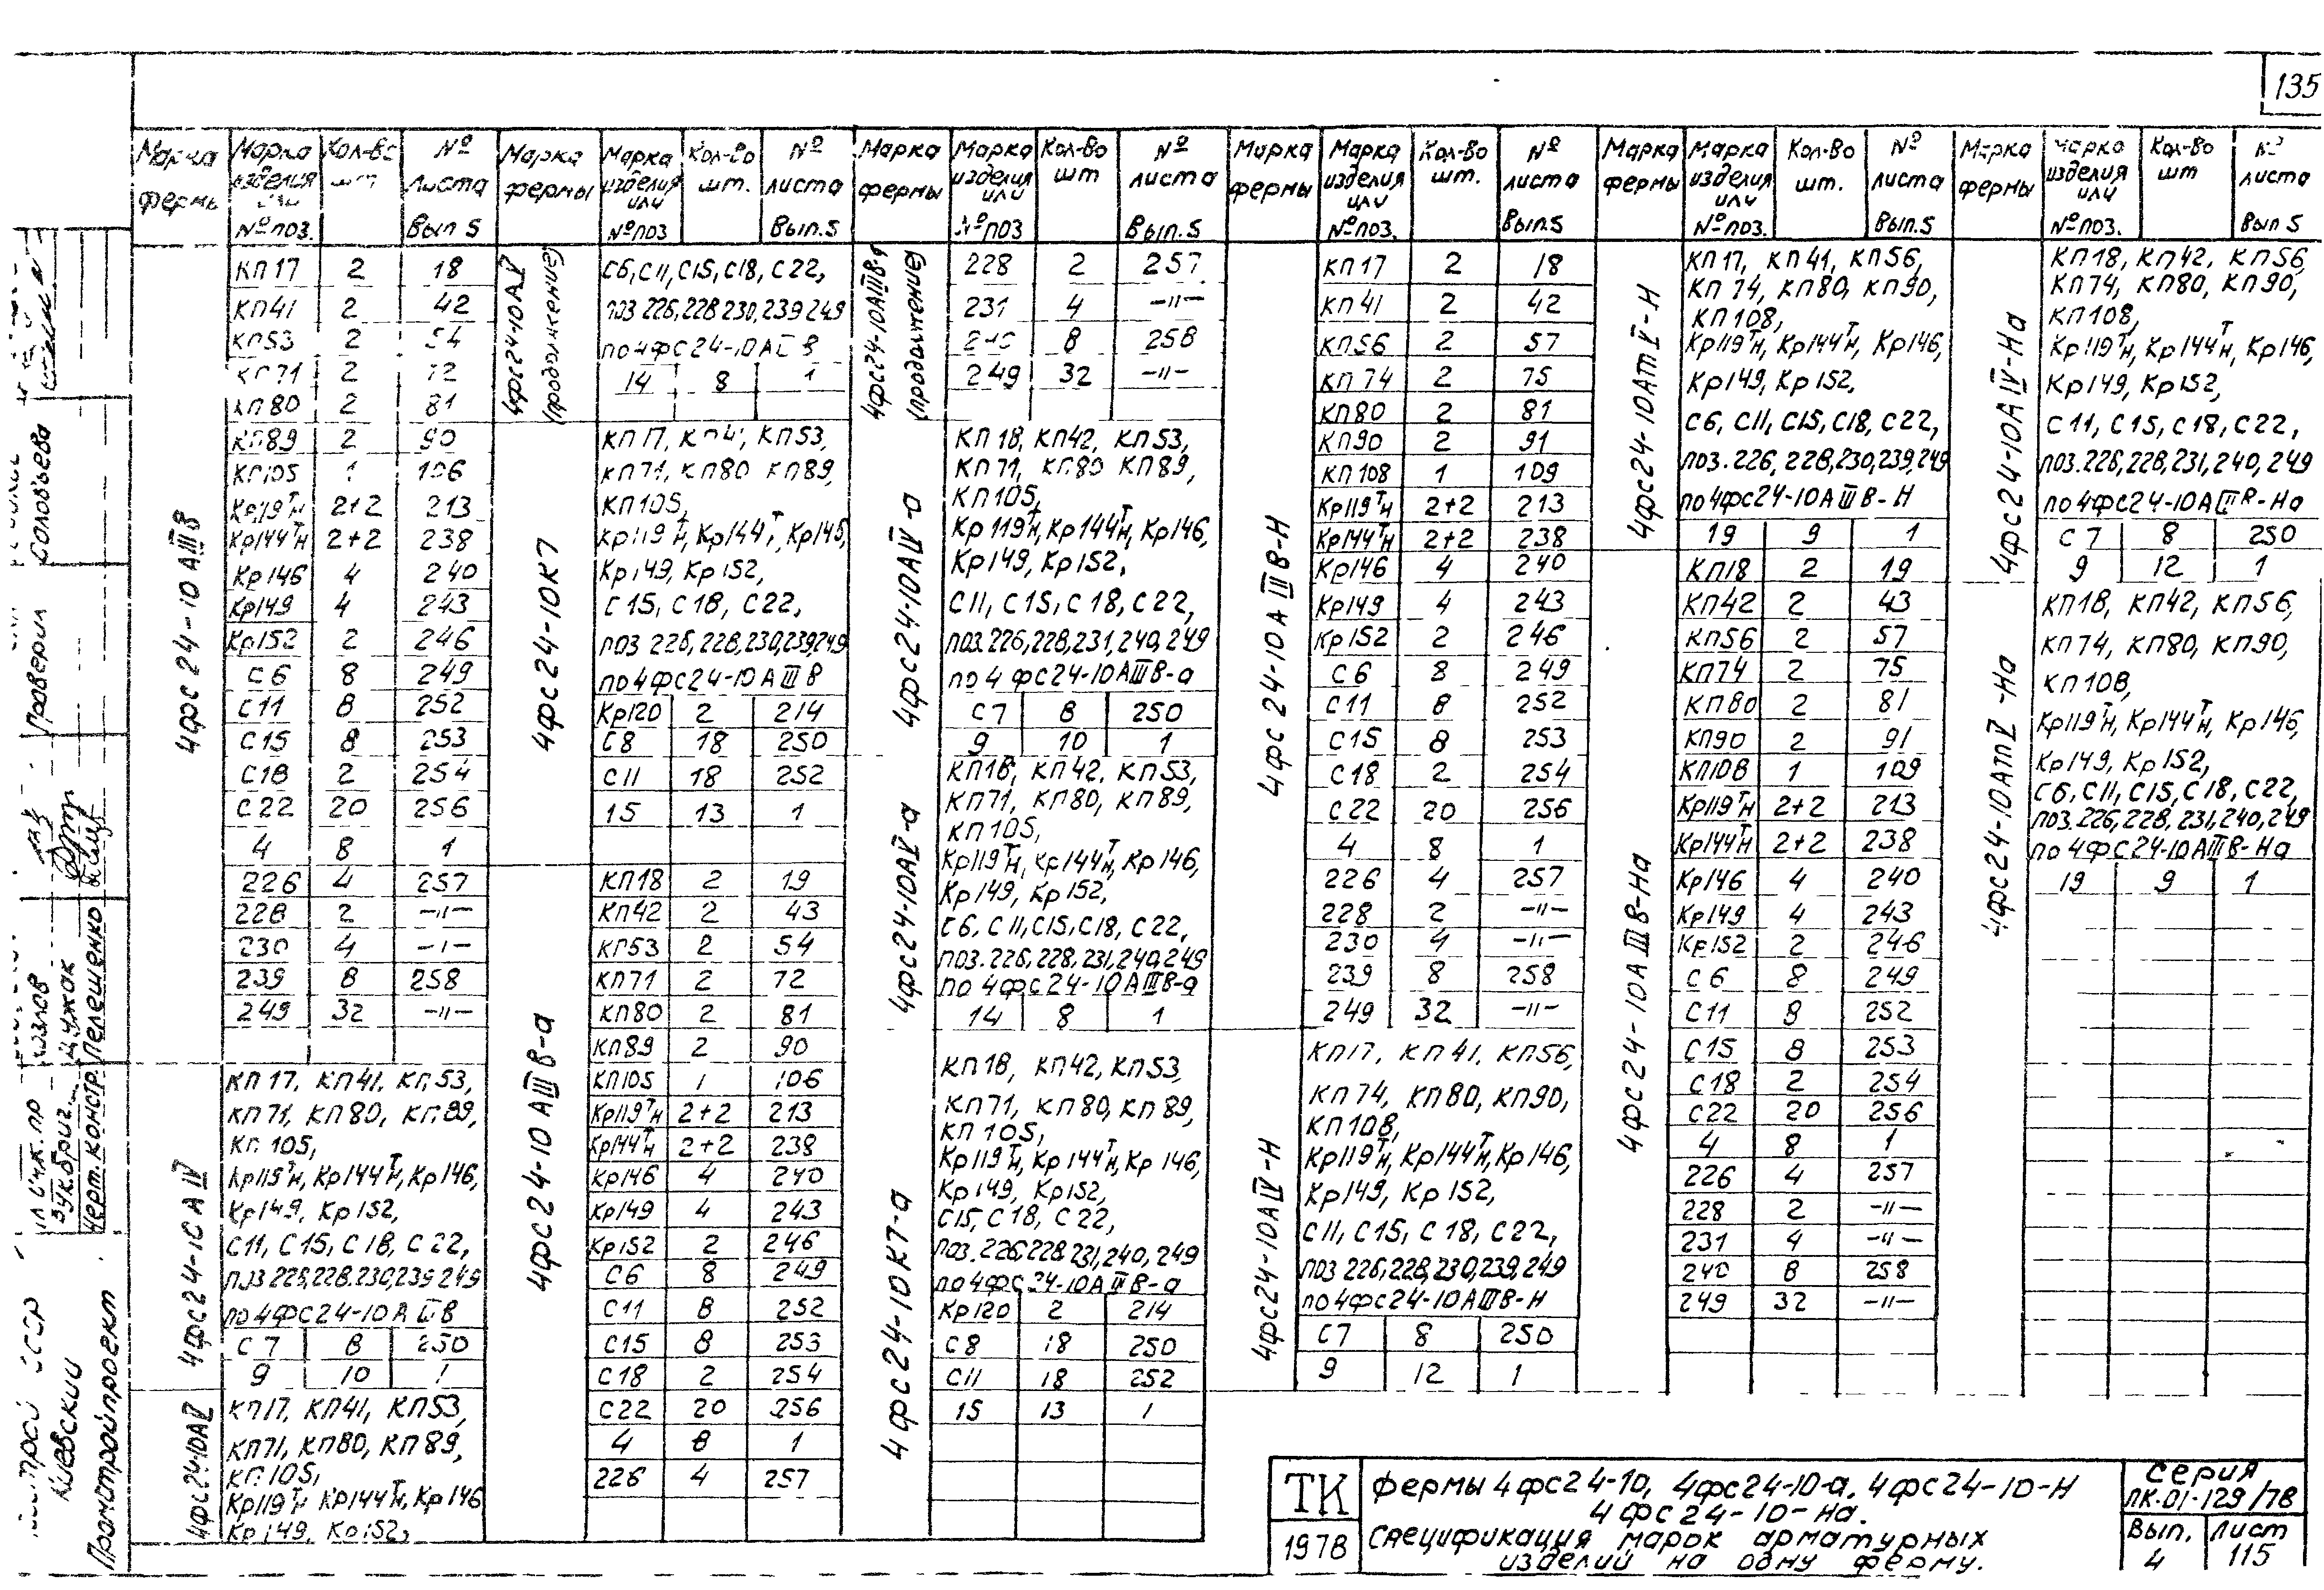 135
Марка фермы | Марка изделия или № поз. | Кол-во шт | № листа Вып 5
4фс24-10АIIIВ
КП17 2 18
КП41 2 42
КП53 2 54
КП71 2 72
КП80 2 81
КП89 2 90
КП105 1 106
Кр119тн 2+2 213
Кр144тн 2+2 238
Кр146 4 240
Кр149 4 243
Кр152 2 246
С6 8 249
С11 8 252
С15 8 253
С18 2 254
С22 20 256
4 8 1
226 4 257
228 2 -"-
230 4 -"-
239 8 258
249 32 -"-
4фс24-10АIV
КП17, КП41, КП53,
КП71, КП80, КП89,
КП105,
Кр119тн, Кр144тн, Кр146,
Кр149, Кр152,
С11, С15, С18, С22,
поз 226, 228, 230, 239 249
по 4фс24-10АIIIВ
С7 8 250
9 10 1
4фс24-10АV
КП17, КП41, КП53,
КП71, КП80, КП89,
КП105,
Кр119тн Кр144тн, Кр146
Кр149, Кр152,
Марка фермы | Марка изделия или № поз | Кол-во шт. | № листа Вып.5
4фс24-10АV (продолжение)
С6, С11, С15, С18, С22,
поз 226, 228 230, 239 249
по 4фс24-10АIIIВ
14 8 1
4фс24-10К7
КП17, КП41, КП53,
КП71, КП80 КП89,
КП105,
Кр119тн, Кр144т, Кр146,
Кр149, Кр152,
С15, С18, С22,
поз 226, 228, 230, 239, 249
по 4фс24-10АIIIВ
Кр120 2 214
С8 18 250
С11 18 252
15 13 1
4фс24-10АIIIВ-а
КП18 2 19
КП42 2 43
КП53 2 54
КП71 2 72
КП80 2 81
КП89 2 90
КП105 1 106
Кр119тн 2+2 213
Кр144тн 2+2 238
Кр146 4 240
Кр149 4 243
Кр152 2 246
С6 8 249
С11 8 252
С15 8 253
С18 2 254
С22 20 256
4 8 1
226 4 257
Марка фермы | Марка изделия или № поз | Кол-во шт | № листа Вып.5
4фс24-10АIIIВ-а (продолжение)
228 2 257
231 4 -"-
240 8 258
249 32 -"-
4фс24-10АIV-а
КП18, КП42, КП53,
КП71, КП80 КП89,
КП105,
Кр119тн, Кр144тн, Кр146,
Кр149, Кр152,
С11, С15, С18, С22,
поз. 226, 228, 231, 240, 249
по 4фс24-10АIIIВ-а
С7 8 250
9 10 1
4фс24-10АV-а
КП18, КП42, КП53,
КП71, КП80, КП89,
КП105,
Кр119тн, Кр144тн, Кр146,
Кр149, Кр152,
С6, С11, С15, С18, С22,
поз. 226, 228, 231, 240, 249
по 4фс24-10АIIIВ-а
14 8 1
4фс24-10К7-а
КП18, КП42, КП53,
КП71, КП80, КП89,
КП105,
Кр119тн, Кр144тн, Кр146,
Кр149, Кр152,
С15, С18, С22,
поз. 226, 228, 231, 240, 249
по 4фс24-10АIIIВ-а
Кр120 2 214
С8 18 250
С11 18 252
15 13 1
Марка фермы | Марка изделия или № поз. | Кол-во шт. | № листа Вып.5
4фс24-10АIIIВ-Н
КП17 2 18
КП41 2 42
КП56 2 57
КП74 2 75
КП80 2 81
КП90 2 91
КП108 1 109
Кр119тн 2+2 213
Кр144тн 2+2 238
Кр146 4 240
Кр149 4 243
Кр152 2 246
С6 8 249
С11 8 252
С15 8 253
С18 2 254
С22 20 256
4 8 1
226 4 257
228 2 -"-
230 4 -"-
239 8 258
249 32 -"-
4фс24-10АIV-Н
КП17, КП41, КП56,
КП74, КП80, КП90,
КП108,
Кр119тн, Кр144тн, Кр146,
Кр149, Кр152,
С11, С15, С18, С22,
поз 226, 228, 230, 239, 249
по 4фс24-10АIIIВ-Н
С7 8 250
9 12 1
Марка фермы | Марка изделия или № поз. | Кол-во шт. | № листа Вып.5
4фс24-10АтV-Н
КП17, КП41, КП56,
КП74, КП80, КП90,
КП108,
Кр119тн, Кр144тн, Кр146,
Кр149, Кр152,
С6, С11, С15, С18, С22,
поз. 226, 228, 230, 239, 249
по 4фс24-10АIIIВ-Н
19 9 1
4фс24-10АIIIВ-На
КП18 2 19
КП42 2 43
КП56 2 57
КП74 2 75
КП80 2 81
КП90 2 91
КП108 1 109
Кр119тн 2+2 213
Кр144тн 2+2 238
Кр146 4 240
Кр149 4 243
Кр152 2 246
С6 8 249
С11 8 252
С15 8 253
С18 2 254
С22 20 256
4 8 1
226 4 257
228 2 -"-
231 4 -"-
240 8 258
249 32 -"-
Марка фермы | Марка изделия или № поз. | Кол-во шт | № листа Вып 5
4фс24-10АIV-На
КП18, КП42, КП56,
КП74, КП80, КП90,
КП108,
Кр119тн, Кр144тн, Кр146,
Кр149, Кр152,
С11, С15, С18, С22,
поз. 226, 228, 231, 240, 249
по 4фс24-10АIIIВ-На
С7 8 250
9 12 1
4фс24-10АтV-На
КП18, КП42, КП56,
КП74, КП80, КП90,
КП108,
Кр119тн, Кр144тн, Кр146,
Кр149, Кр152,
С6, С11, С15, С18, С22,
поз. 226, 228, 231, 240, 249
по 4фс24-10АIIIВ-На
19 9 1
Проверил Соловьева
Козлов
рук.бриг. Чужак
Черт. констр. Пелешенко
СССР
Киевский
Промстройпроект
ТК
1978
Фермы 4фс24-10, 4фс24-10-а, 4фс24-10-Н
4фс24-10-На.
Спецификация марок арматурных
изделий на одну ферму.
Серия
ПК.01-129/78
Вып. Лист
4 115